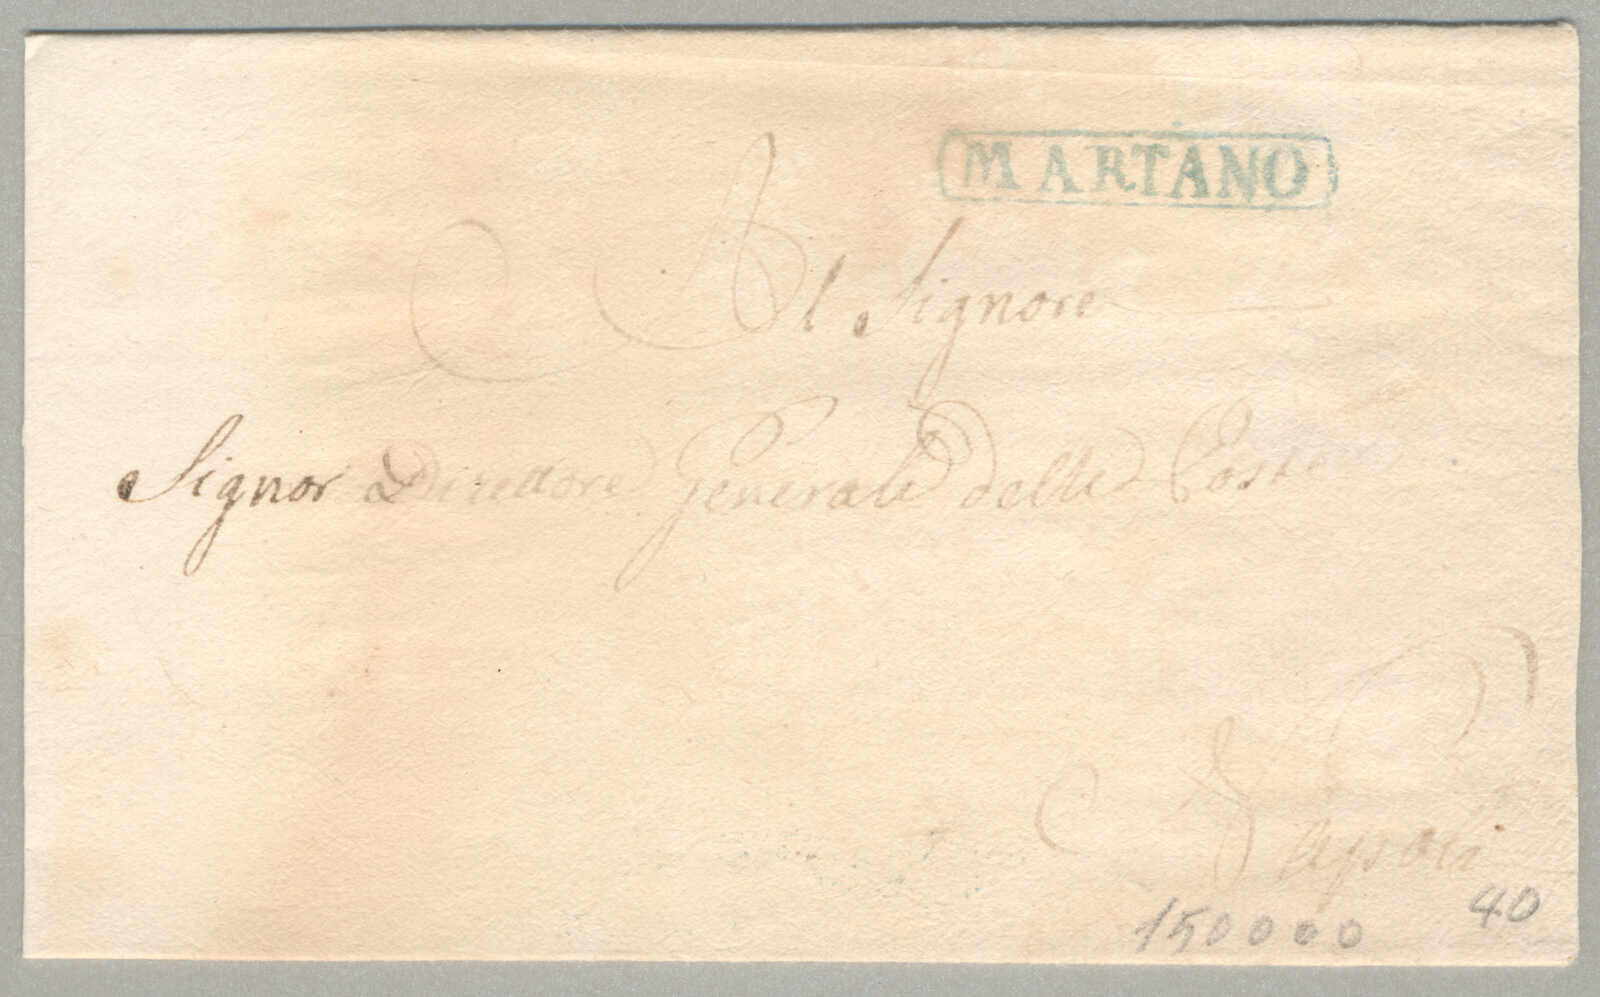 MARTANO
Al Signore
Signor Direttore Generale delle Poste
Napoli
40
150000